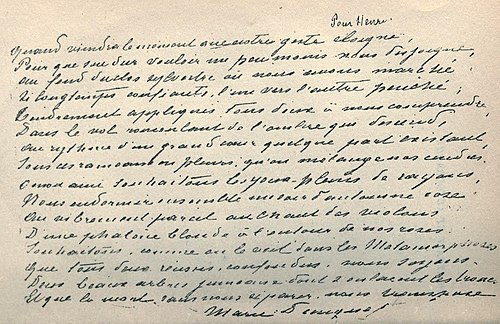 Pour Henri.
Quand viendra le moment que notre geste éloigne,
Pour que son dur vouloir un peu moins nous disjoigne,
Au fond du clos sylvestre où nous avons marché
Si longtemps confiants, l'une vers l'autre penché,
Tendrement appliqués tous deux à nous comprendre,
Dans le vol nonchalant de l'ombre qui descend,
Au rythme d'un grand cœur quelque part existant,
Sous ces rameaux en pleurs, qu'on mélange nos cendres.
O mon ami souhaitons les yeux pleins de rayons
Nous endormir ensemble un soir d'automne rose
Au vibrement pareil au chant des violons
D'une phalène blonde à l'entour de nos roses.
Souhaitons, comme on le voit dans les Métamorphoses
Que tous deux réunis, confondus, nous soyons
Deux beaux arbres jumeaux dont s'enlacent les troncs
Et que la mort, sans nous séparer, nous
Marie